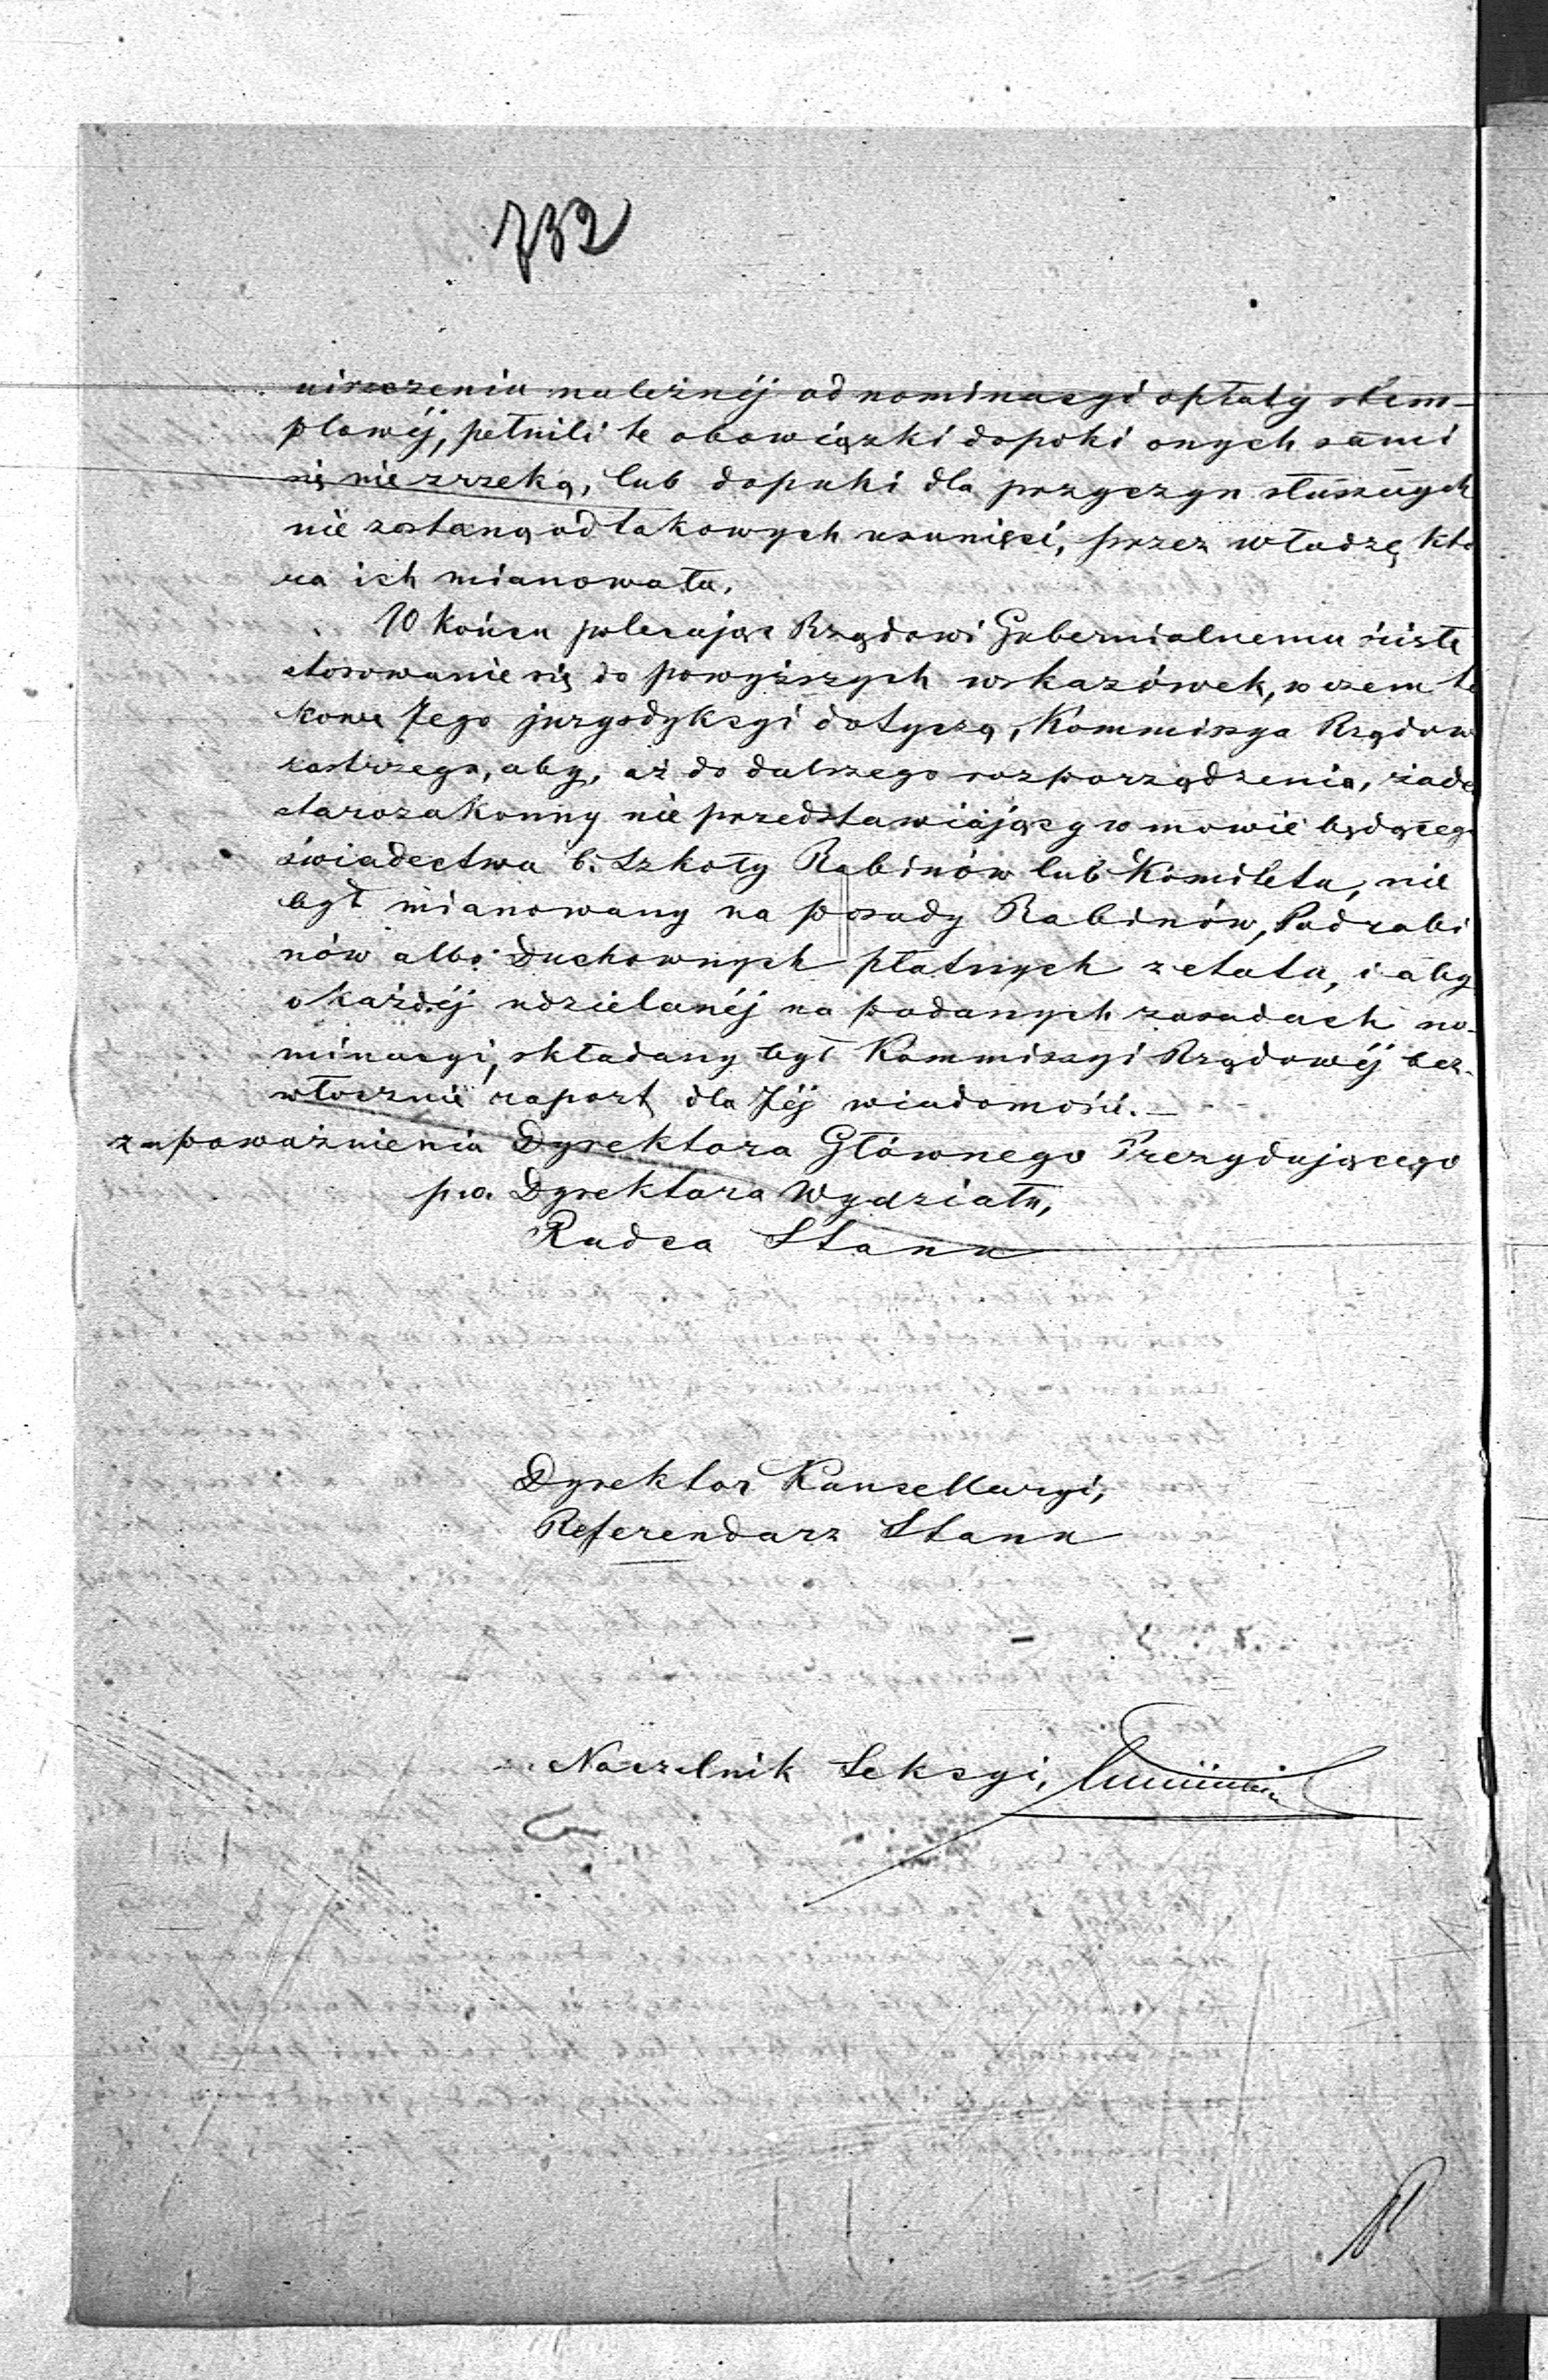 732
uiszczeniu należnéj od nominacyi opłaty stem-
plowéj, pełnili te obowiązki dopóki onych sami
się nie zrzeką, lub dopóki dla przyczyn słusznych
nie zostaną od takowych usunięci, przez władzę któ
ra ich mianowała.
W końcu polecając Rządowi Gubernialnemu ściste
stosowanie się do powyższych wskazówek, w czem ta
kowe Jego juryzdykcyi dotyczą, Kommissya Rządow
zastrzega, aby, aż do dalszego rozporządzenia, żade
starozakonny nie przedstawiający w mowie będącego
świadectwa b. Szkoły Rabinów lub Komitetu, nie
był mianowany na posady Rabinów, Podrabi
nów albo Duchownych płatnych z etatu, i aby
o każdéj udzielanéj na podanych zasadach no-
minacyi, składany był Kommissyi Rządowéj bez-
włocznie raport dla Jéj wiadomości.—
z upoważnienia Dyrektora Głównego Prezydującego
p.o. Dyrektora Wydziału,
Radca Stanu
Dyrektor Kancellaryi,
Referendarz Stanu
Naczelnik Sekcyi,